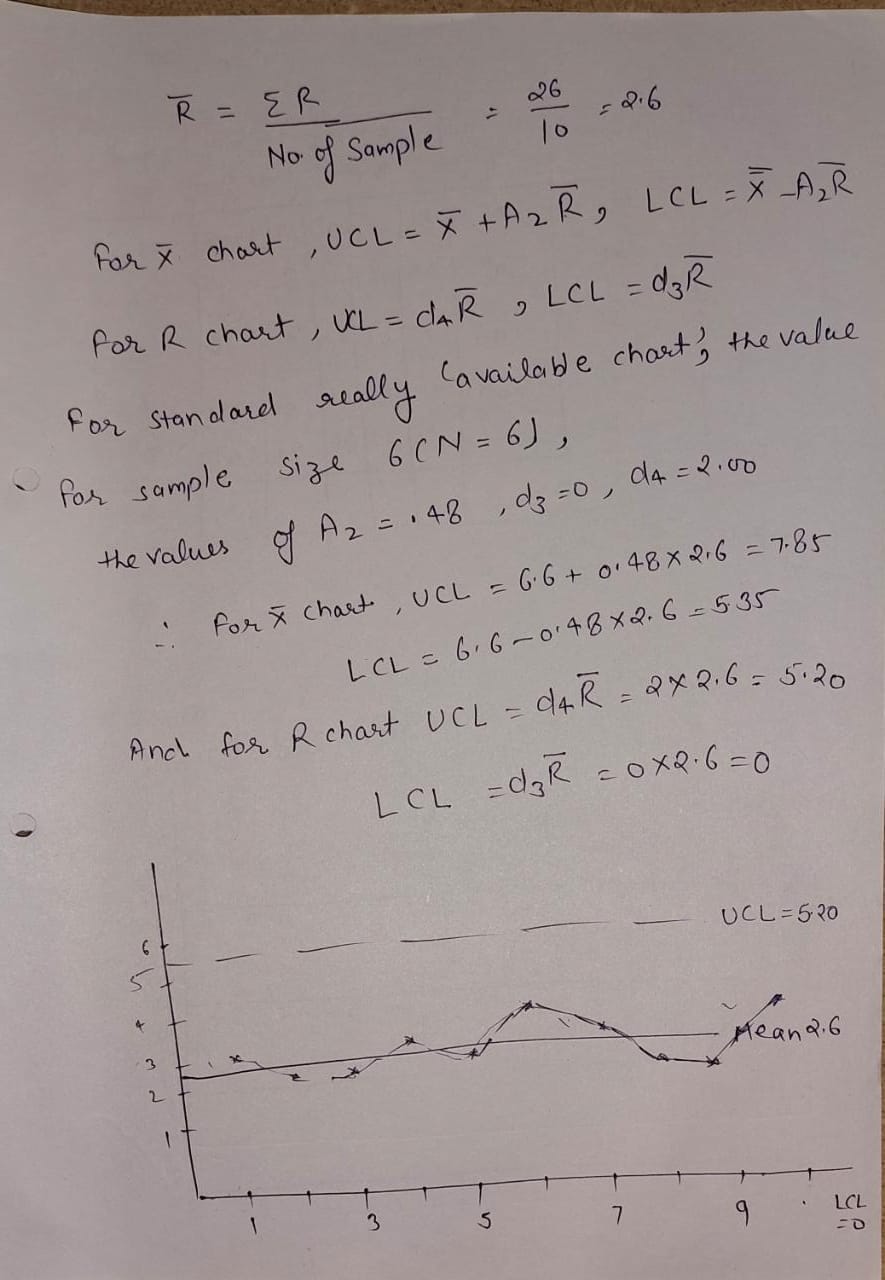 R̅ = ΣR / No. of Sample = 26/10 = 2.6
For x̅ chart, UCL = x̿ + A₂R̅, LCL = x̿ - A₂R̅
For R chart, UCL = d₄R̅, LCL = d₃R̅
For standard really (available chart), the value
for sample size 6 (N = 6),
the values of A₂ = .48, d₃ = 0, d₄ = 2.00
∴ For x̅ chart, UCL = 6.6 + 0.48 × 2.6 = 7.85
LCL = 6.6 - 0.48 × 2.6 = 5.35
And for R chart UCL = d₄R̅ = 2 × 2.6 = 5.20
LCL = d₃R̅ = 0 × 2.6 = 0
UCL = 5.20
6
5
4
Mean 2.6
3
2
1
1 3 5 7 9 LCL = 0